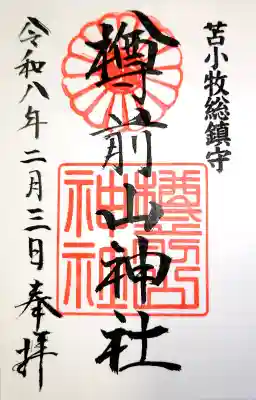 苫小牧総鎮守
樽前山神社
令和八年二月三日奉拝
樽前山神社